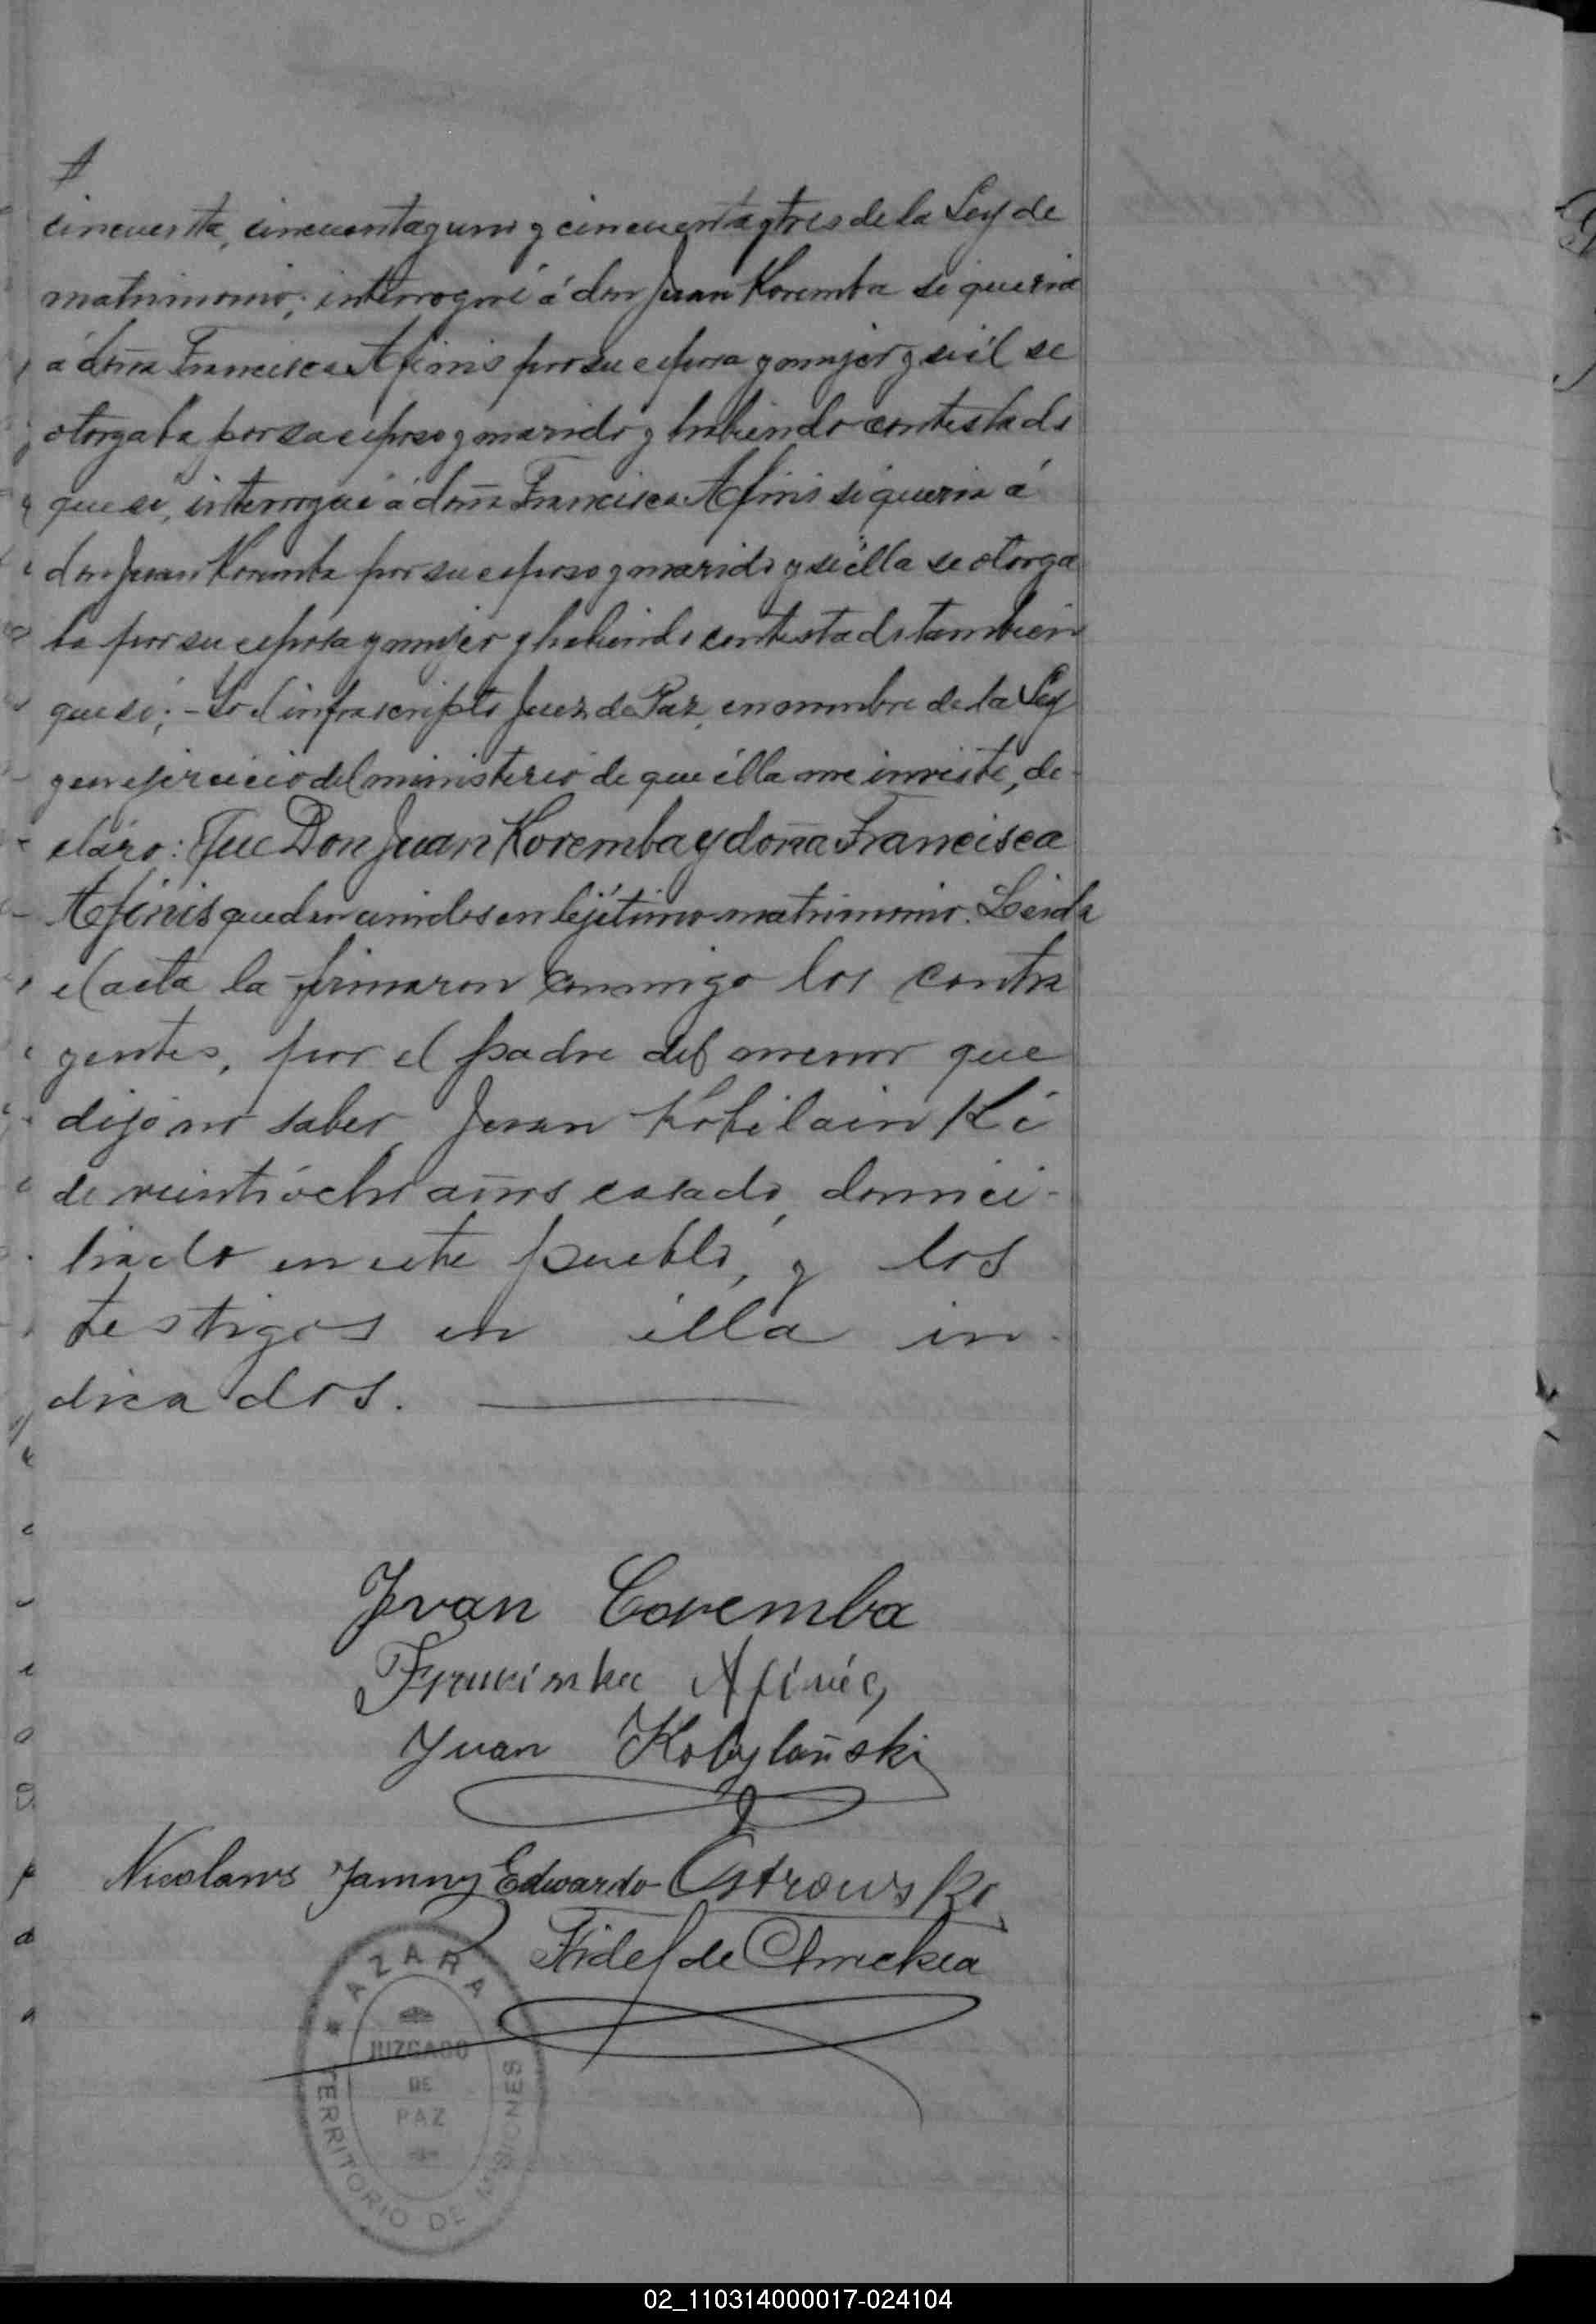 cincuenta, cincuenta y uno y cincuenta y tres de la Ley de
matrimonio; interrogué á don Juan Koremba si queria
á doña Francisca Afinis por su esposa y mujer y si él se
otorgaba por su esposo y marido y habiendo contestado
que sí, interrogué á doña Francisca Afinis si queria á
don Juan Koremba por su esposo y marido y si élla se otorga
ba por su esposa y mujer y habiendo contestado tambien
que sí; - Yo el infrascripto Juez de Paz, en nombre de la Ley
y en ejercicio del ministerio de que élla me inviste, de-
claro: Que Don Juan Koremba y doña Francisca
Afinis quedan unidos en lejítimo matrimonio. Leida
el acta la firmaron conmigo los contra
yentes, por el padre del menor que
dijo no saber Juan Kobilainki
de veintiócho años casado, domici-
liado en este pueblo, y los
testigos en élla in-
dicados.
Jvan Coremba
Francinka Afinis
Yvan Kobylañski
Nicolaus Jamny Edwardo Ostrowski
Fidel de
AZARA
JUZGADO
DE
PAZ
TERRITORIO DE MISIONES
02_110314000017-024104